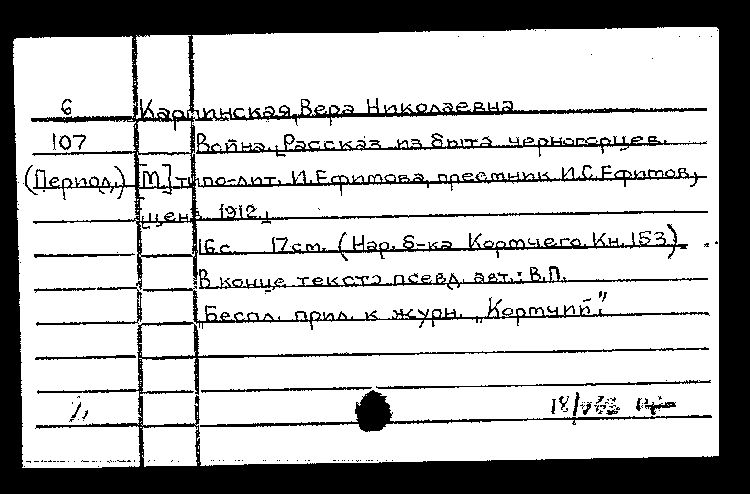 6 Карпинская, Вера Николаевна
107 Война. Рассказ из быта черногорцев.
(Период.) [М.] типо-лит. И. Ефимова, преемник И.С. Ефимов,
ценз. 1912.
16с. 17см. (Нар. б-ка Кормчего. Кн. 153).
В конце текста псевд. авт.: В.П.
Беспл. прил. к журн. „Кормчий".
18/